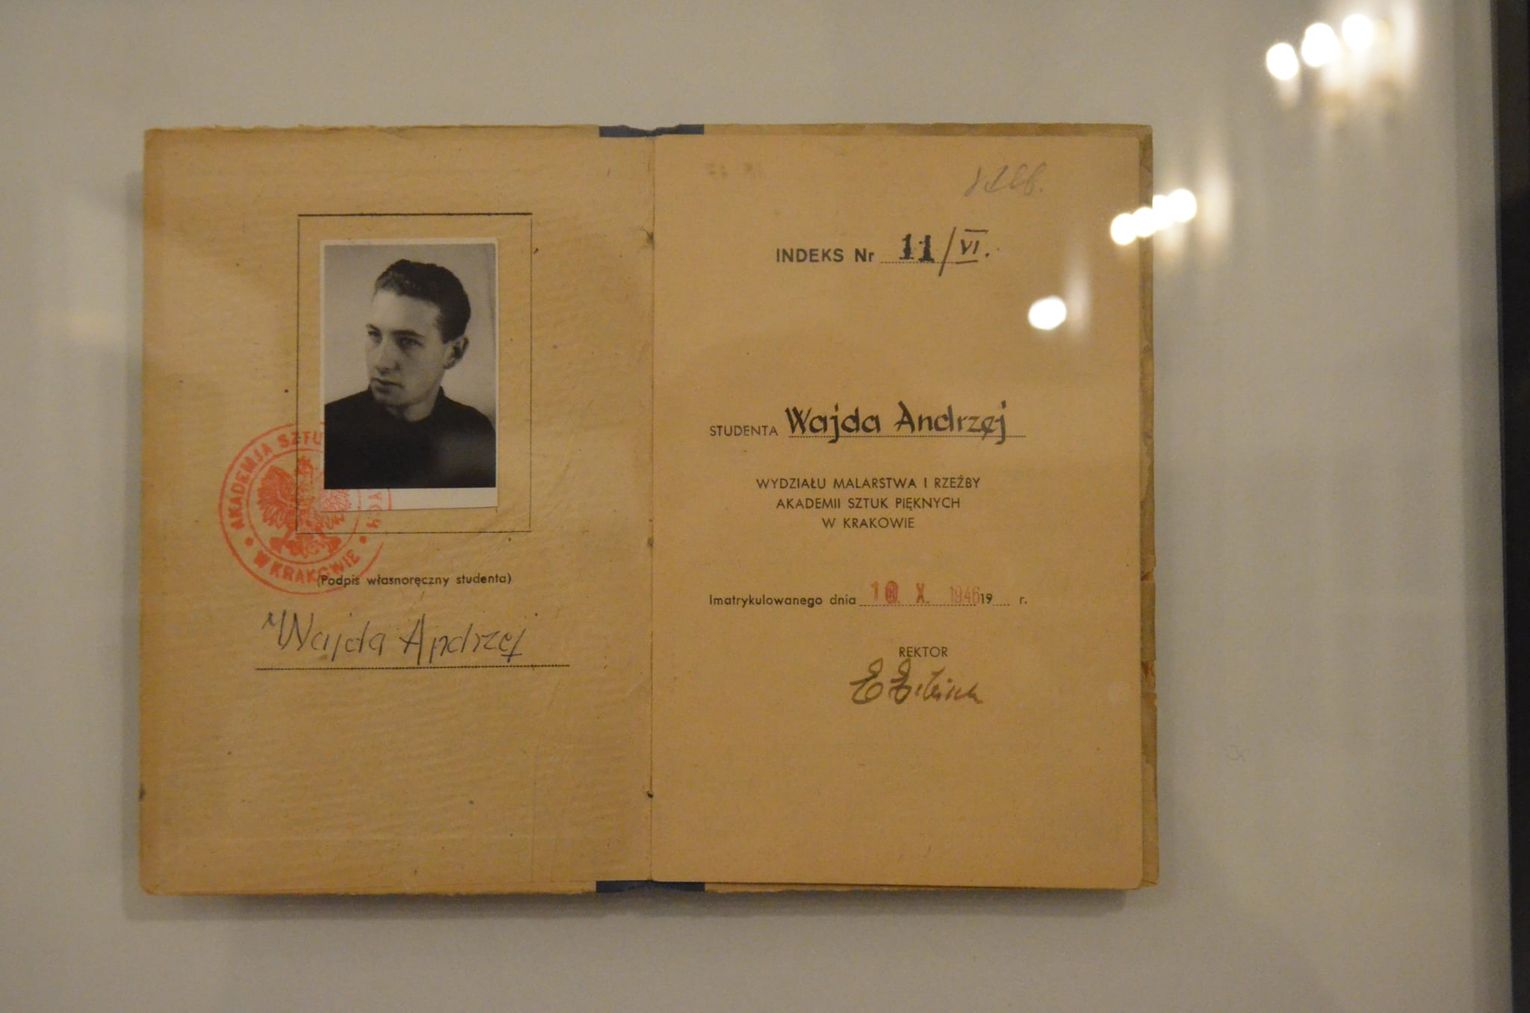 AKADEMJA SZTU YCH
• W KRAKOWIE •
(Podpis własnoręczny studenta)
Wajda Andrzej
INDEKS Nr 11/VI.
STUDENTA Wajda Andrzej
WYDZIAŁU MALARSTWA I RZEŹBY
AKADEMII SZTUK PIĘKNYCH
W KRAKOWIE
Imatrykulowanego dnia 10 X. 1946 19 r.
REKTOR